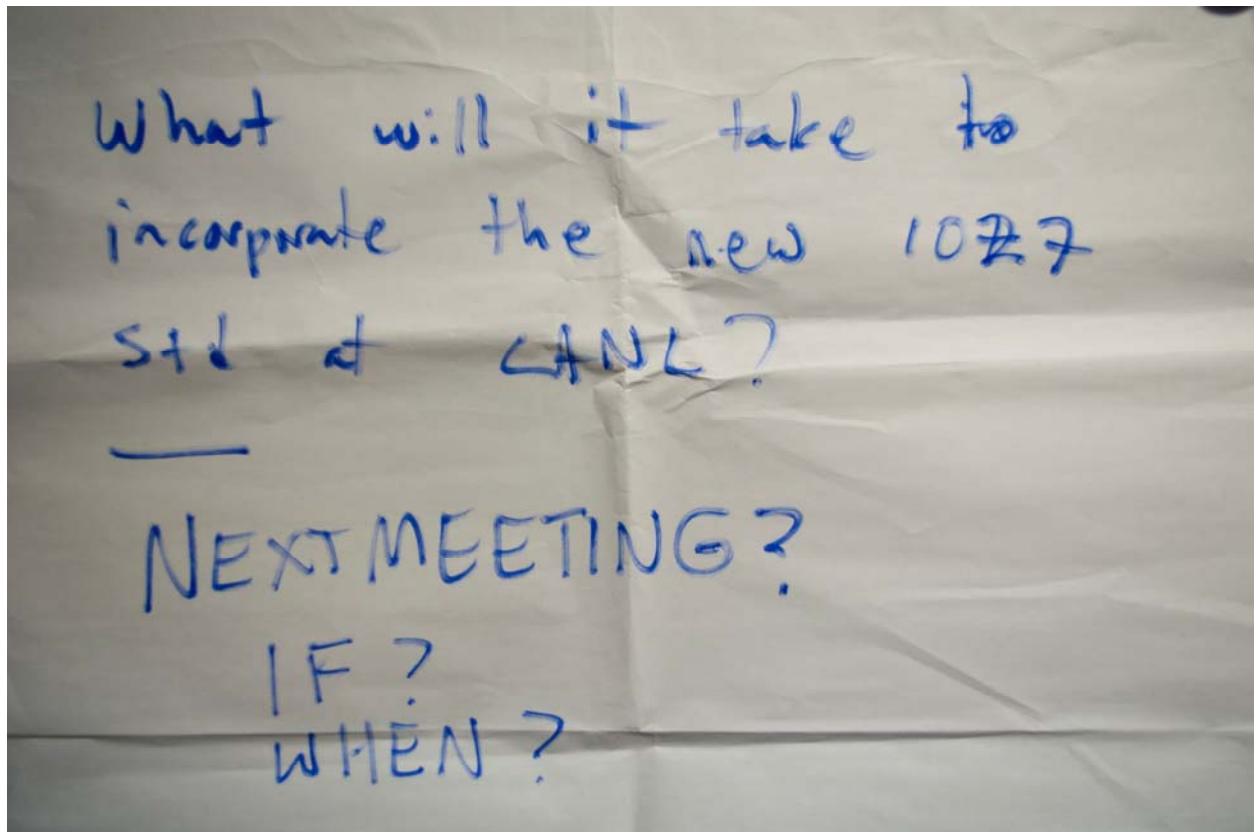 What will it take to
incorporate the new 1027
std at LANL?
NEXT MEETING?
IF?
WHEN?